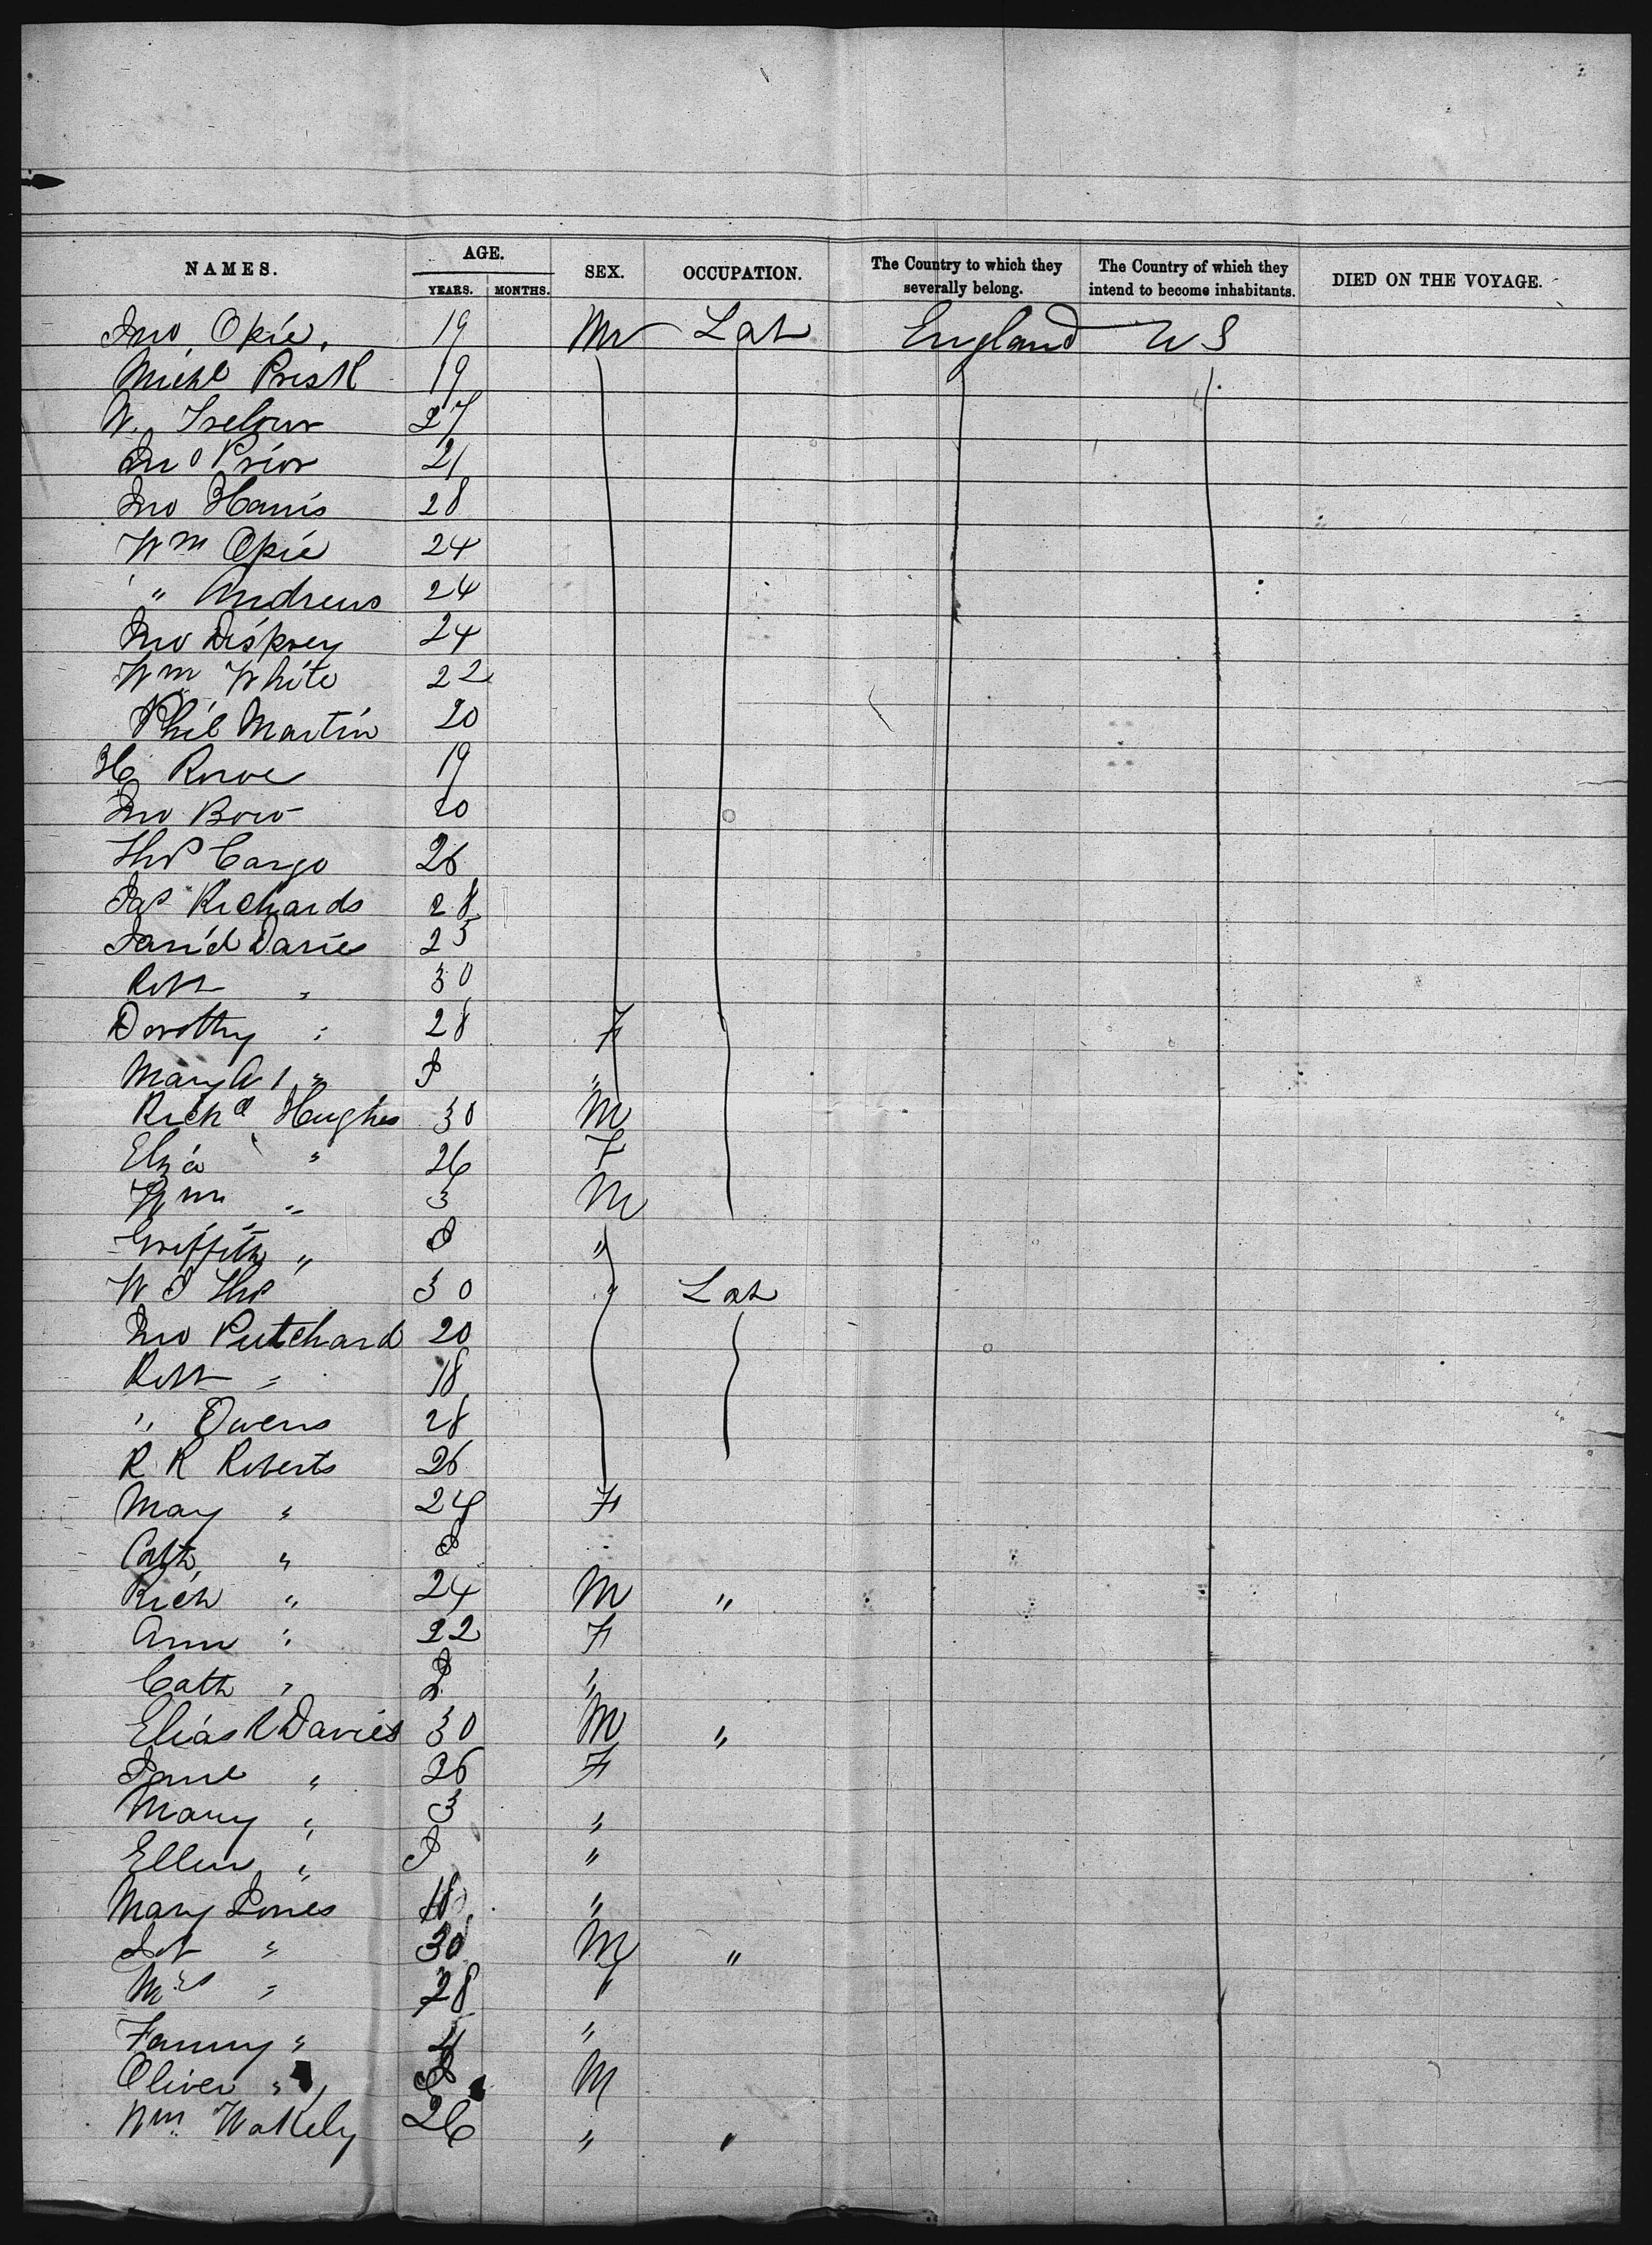 NAMES. AGE. SEX. OCCUPATION. The Country to which they severally belong. The Country of which they intend to become inhabitants. DIED ON THE VOYAGE.
YEARS. MONTHS.
Jno. Opie, 19 M Lab England U S
Michl 19
W. 27
Jno Prior 21
Jno Harris 28
Wm Opie 24
" Andrews 24
Jno 24
Wm White 22
Phil Martin 20
H Rowe 19
Jno 20
Thos Cargo 26
Jas Richards 28
David Davies 25
Robt " 30
Dorothy " 28 F
Mary A " "
Richd Hughes 30 M
Eliza " 26 F
Wm " 3 M
Griffith " "
W J Thos 30 " Lab
Jno Pritchard 20
Robt " 18
" Owens 28
R R Roberts 26
Mary " 24 F
Cath "
Rich " 24 M "
Ann " 22 F
Cath " "
Elias R Davies 30 M "
Jane " 26 F
Mary " 3 "
Ellen " "
Mary Jones 18 "
" 30 M "
Mrs " 28
Fanny " 4 "
Oliver " M
Wm Wakely 26 " "